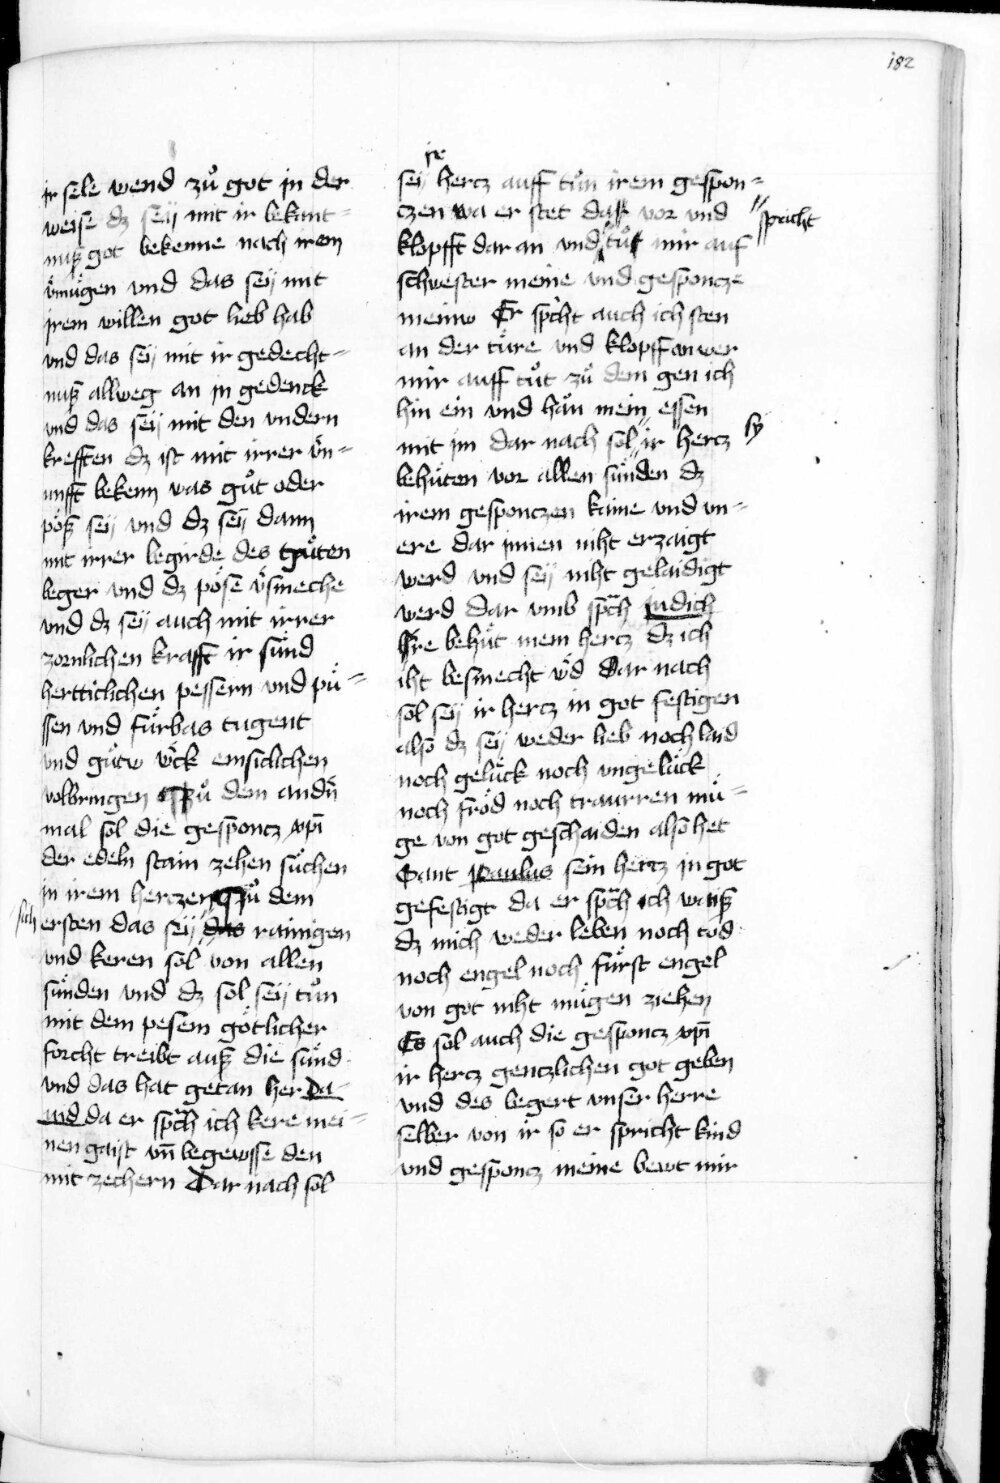 182
ir sele wend zuͦ got in der
weise dz seÿ mit ir bekant-
nuß got bekenne nach irem
v̈mügen vnd das seÿ mit
irem willen got lieb hab
vnd das seÿ mit ir gedecht-
nuß allweg an in gedenck
vnd das seÿ mit den vndern
krefften dz ist mit irrer v̈n-
unfft bekenn was guͦt oder
pöß seÿ vnd dz seÿ dann
mit irrer begirde des guͦten
beger vnd dz pöse v̈smeche
vnd dz seÿ auch mit irrer
zornlichen krafft ir sünd
hertticlichen pessern vnd puͤ-
ssen vnd fürbas tugent
vnd guͦtw v̈ck emsiclichen
volbringen Zuͦ dem andn̄
mal sol die gesponcz xp̄i
der edeln stain zehen suͤchen
in irem herczen Zuͦ dem
sich ersten das seÿ das rainigen
vnd keren sol von allen
sünden vnd dz sol seÿ tuͦn
mit dem pesem götlicher
forcht treibt auß die sünd
vnd das hat getan her Da-
uid da er sp̄ch ich kere mei-
nen gaist vn̄ begewsse den
mit zechern Dar nach sol
ir
seÿ hercz auff tuͦn irem gespon-
czen wa er stet da vor vnd
spricht
klopfft dar an vnd tuͦt mir auf
schwester meine vnd gesponcze
meinw Er sp̄cht auch ich sten
an der türe vnd klopff an wer
mir auff tuͦt zuͦ dem gen ich
hin ein vnd hän mein essen
mit im dar nach sol ir hercz sy
behüten vor allen sünden dz
irem gesponczen kaine vnd vn-
ere dar innen niht erzaigt
werd vnd seÿ niht gelaidigt
werd dar vmb sp̄ch Judich
Hre behüt mein hercz dz ich
iht besmecht wd Dar nach
sol seÿ ir hercz in got festigen
also dz seÿ weder lieb noch laid
noch gelück noch vngelück
noch fröd noch traurren mü-
ge von got geschaiden also het
Sant Paulus sein hercz in got
gefestigt da er sp̄ch ich waiß
dz mich weder leben noch tod
noch engel noch fürst engel
von got niht mügen ziehen
Es sol auch die gesponcz xp̄i
ir hercz genczlichen got geben
vnd des begert vnser herre
selber von ir so er spricht kind
vnd gesponcz meine bewt mir